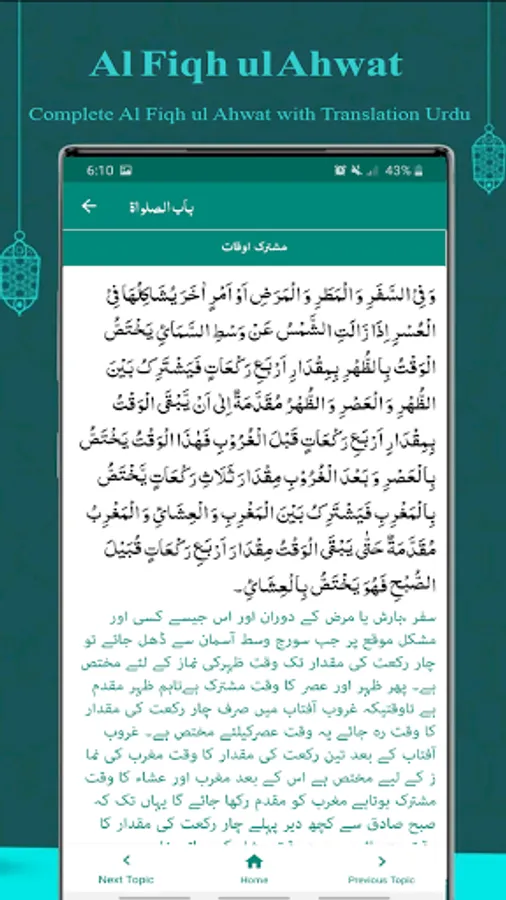 Al Fiqh ul Ahwat
Complete Al Fiqh ul Ahwat with Translation Urdu
6:10
43%
باب الصلواة
مشترک اوقات
وَفِیْ السَّفَرِ وَالْمَطَرِ وَالْمَرَضِ اَوْ اَمْرٍ اٰخَرَ یُشَاکِلُهَا فِیْ
الْعُسْرِ اِذَا زَالَتِ الشَّمْسُ عَنْ وَسْطِ السَّمَائِ یَخْتَصُّ
الْوَقْتُ بِالظُّهْرِ بِمِقْدَارِ اَرْبَعِ رَکْعَاتٍ فَیَشْتَرِکُ بَیْنَ
الظُّهْرِ وَالْعَصْرِ وَالظُّهْرُ مُقَدَّمَةٌ اِلیٰ اَنْ یَّبْقَی الْوَقْتُ
بِمِقْدَارِ اَرْبَعِ رَکْعَاتٍ قَبْلَ الْغُرُوْبِ فَهٰذَا الْوَقْتُ یَخْتَصُّ
بِالْعَصْرِ وَبَعْدَ الْغُرُوْبِ مِقْدَارَ ثَلَاثِ رَکْعَاتٍ یَّخْتَصُّ
بِالْمَغْرِبِ فَیَشْتَرِکُ بَیْنَ الْمَغْرِبِ وَالْعِشَائِ وَالْمَغْرِبُ
مُقَدَّمَةٌ حَتّٰی یَبْقَی الْوَقْتُ مِقْدَارَ اَرْبَعِ رَکْعَاتٍ قُبَیْلَ
الصُّبْحِ فَهُوَ یَخْتَصُّ بِالْعِشَائِ۔
سفر ،بارش یا مرض کے دوران اور اس جیسے کسی اور
مشکل موقع پر جب سورج وسط آسمان سے ڈھل جائے تو
چار رکعت کی مقدار تک وقت ظہرکی نماز کے لئے مختص
ہے۔ پھر ظہر اور عصر کا وقت مشترک ہےتاہم ظہر مقدم
ہے تاوقتیکہ غروب آفتاب میں صرف چار رکعت کی مقدار
کا وقت رہ جائے یہ وقت عصرکیلئے مختص ہے۔ غروب
آفتاب کے بعد تین رکعت کی مقدار کا وقت مغرب کی نما
ز کے لیے مختص ہے اس کے بعد مغرب اور عشاء کا وقت
مشترک ہوتاہے مغرب کو مقدم رکھا جائے گا یہاں تک کہ
صبح صادق سے کچھ دیر پہلے چار رکعت کی مقدار کا
Next Topic
Home
Previous Topic